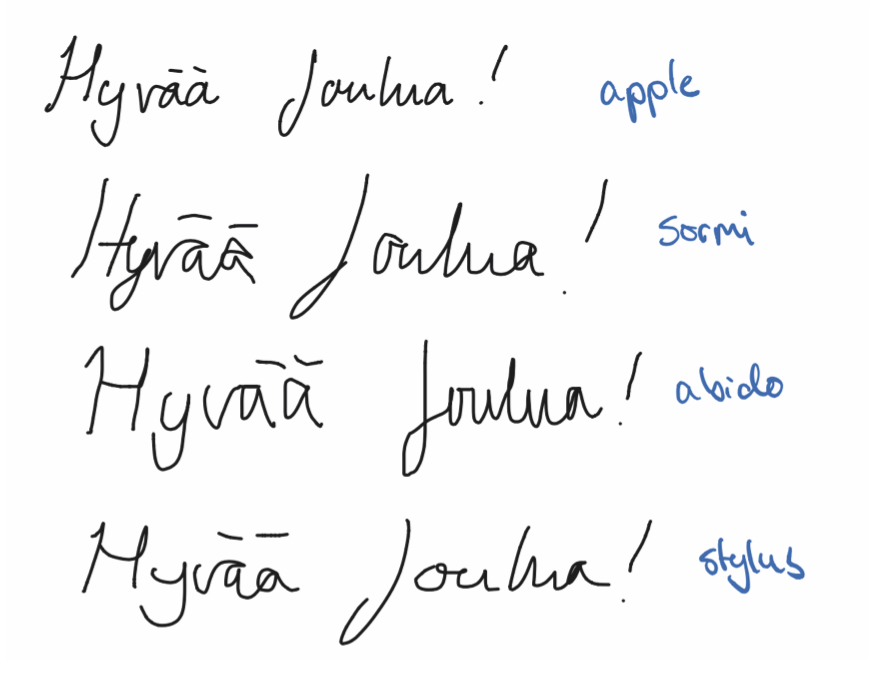 Hyvää Joulua! apple
Hyvää Joulua! sormi
Hyvää Joulua! abido
Hyvää Joulua! stylus